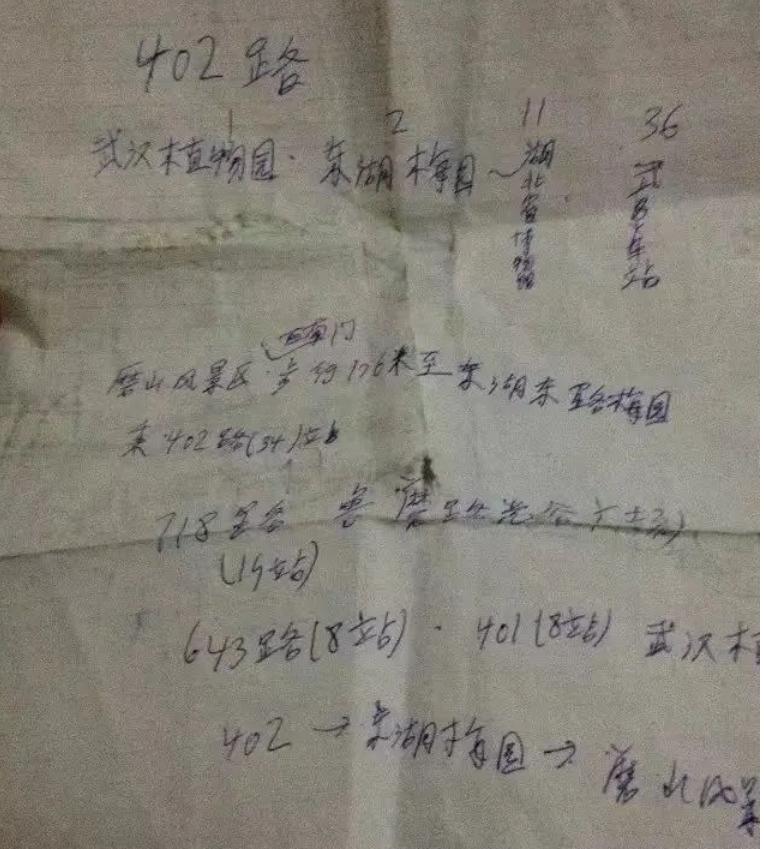 402路
2 11 36
武汉植物园·东湖梅园~湖北省博物馆 武昌火车站
西南门
磨山风景区·步行176米至东湖东路梅园
乘402路(34)站
718路 鲁磨路
(19站)
643路(8站)·401(8站) 武汉植
402→东湖梅园→磨山风景